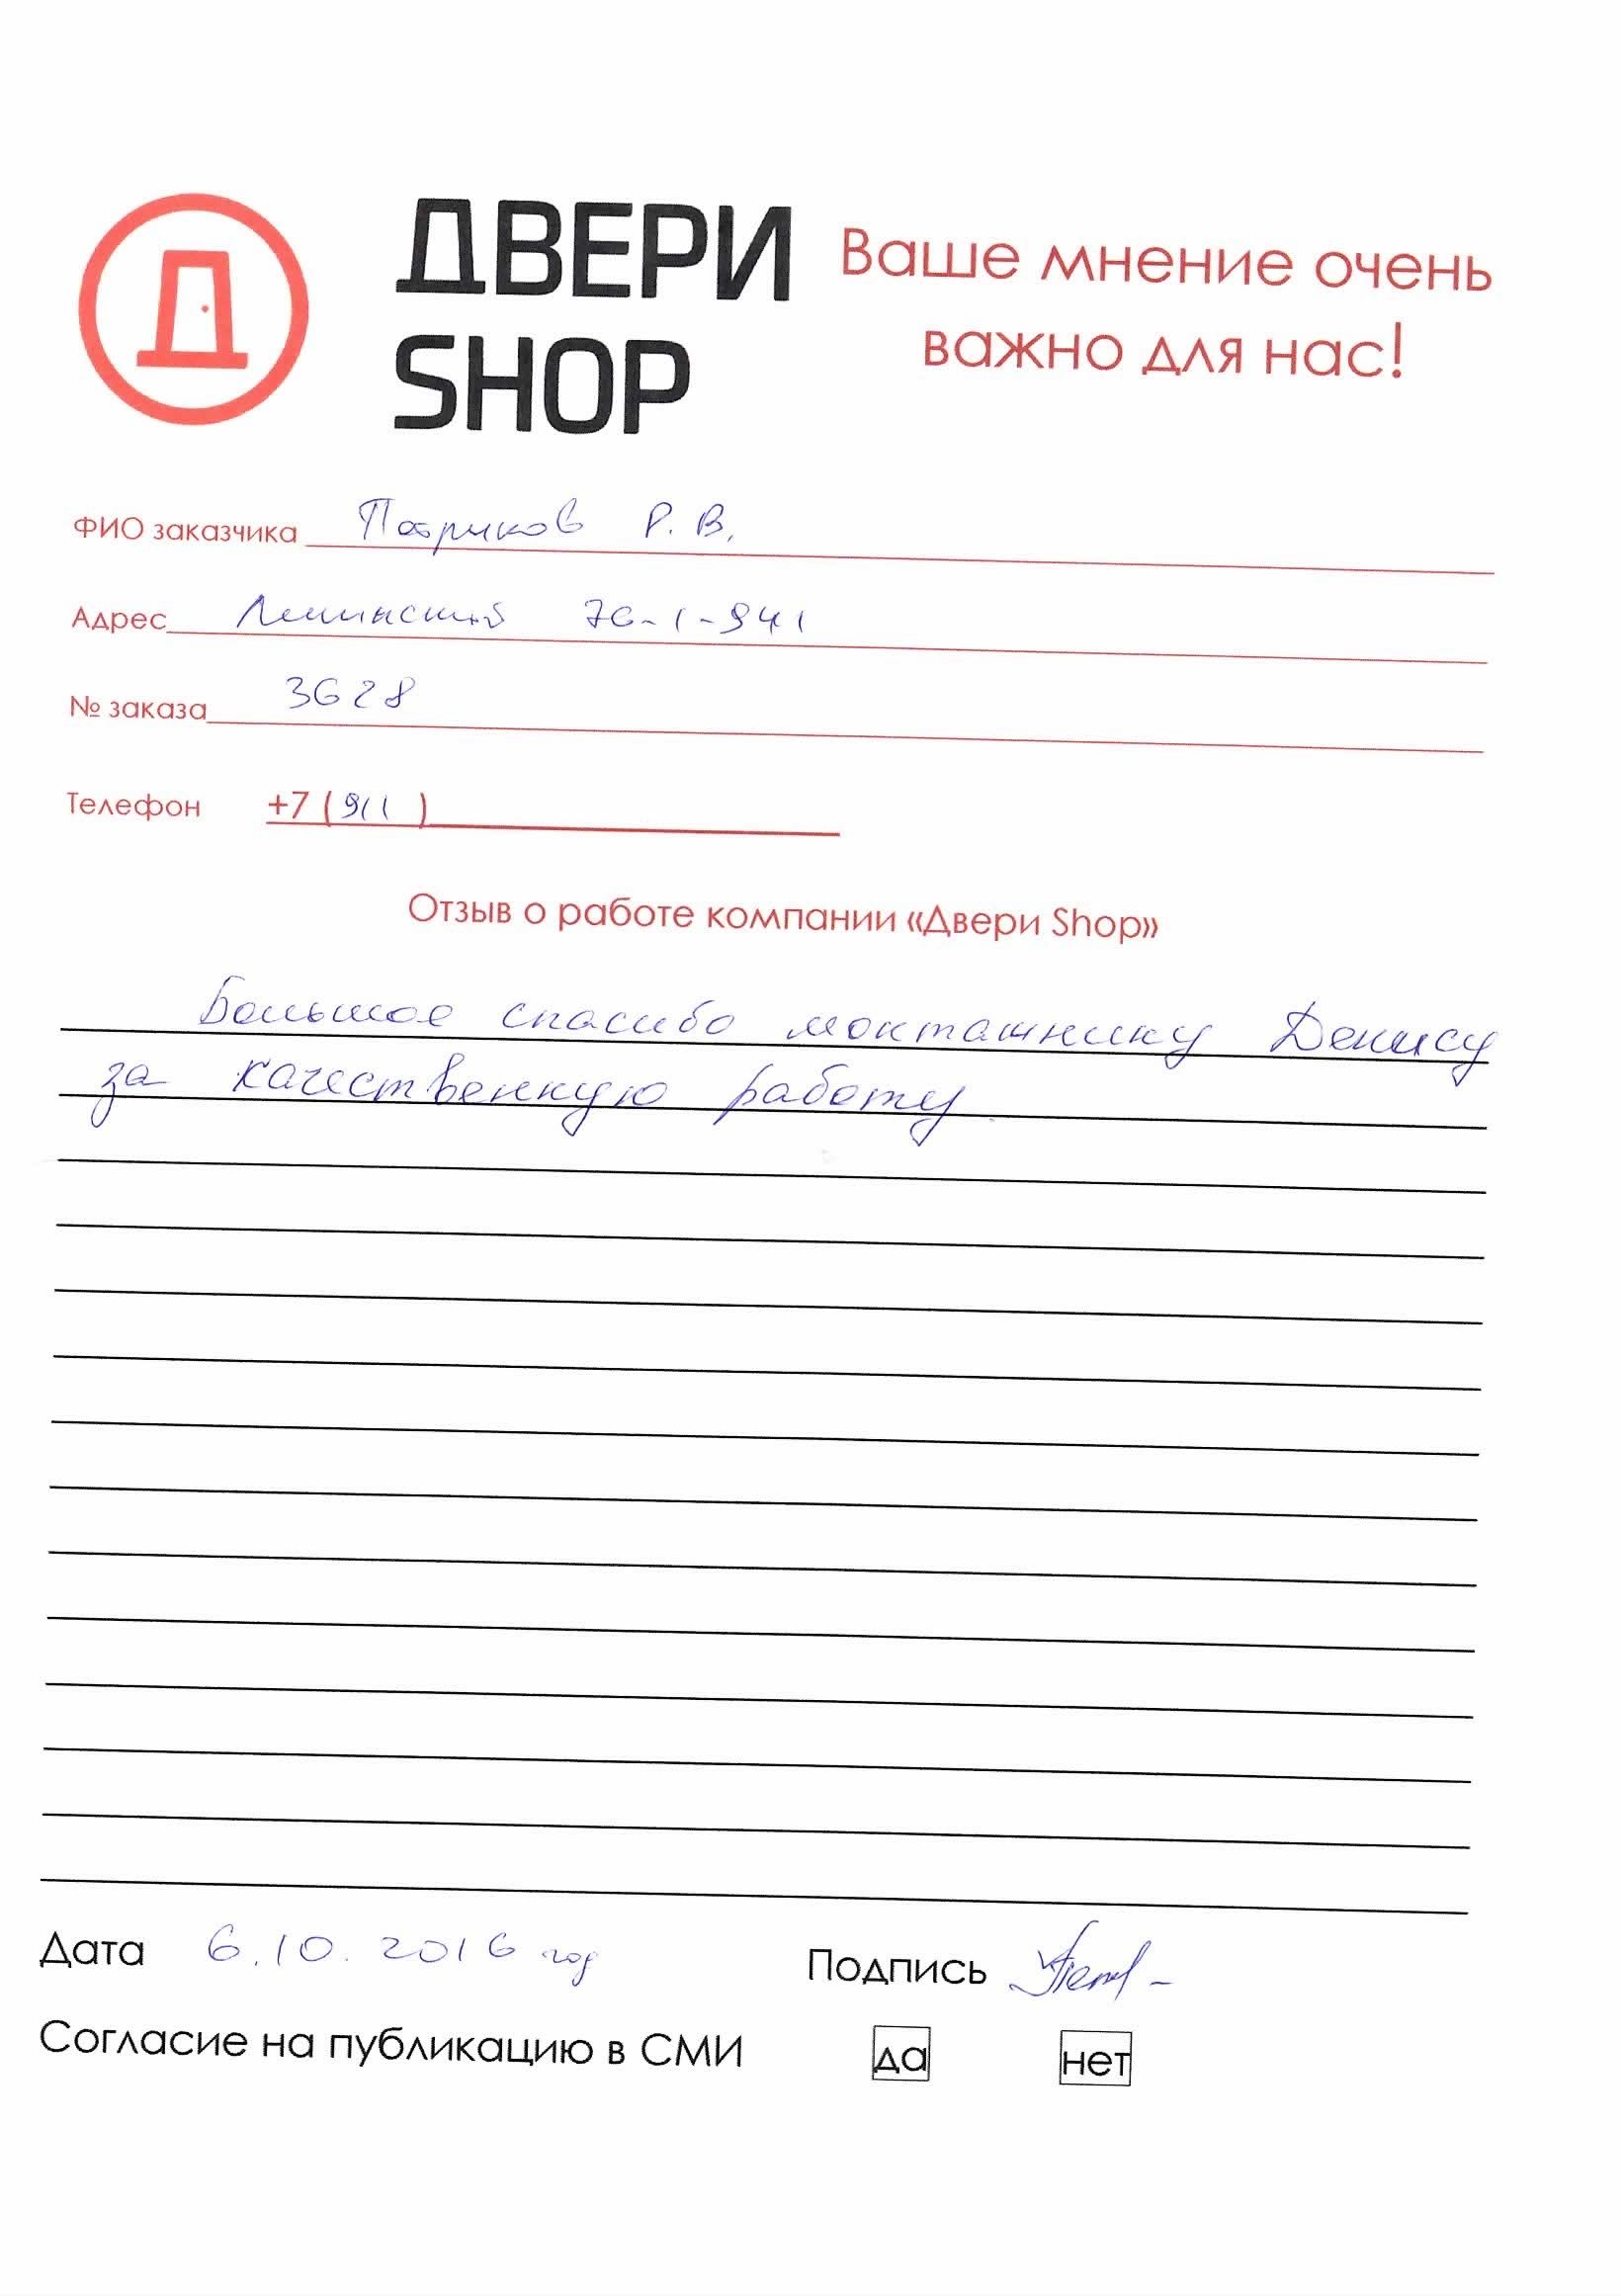 ДВЕРИ
SHOP
Ваше мнение очень
важно для нас!
ФИО заказчика Р. В.
Адрес Ленинский 76-1-941
№ заказа 3628
Телефон +7 (911 )
Отзыв о работе компании «Двери Shop»
Большое спасибо монташнику Денису
за качественную работу.
Дата 6.10.2016 год
Подпись
Согласие на публикацию в СМИ да нет